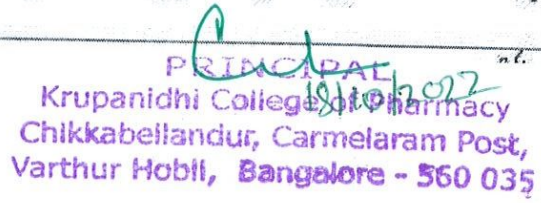 PRINCIPAL
18/10/2022
Krupanidhi College of Pharmacy
Chikkabellandur, Carmelaram Post,
Varthur Hobli, Bangalore - 560 035